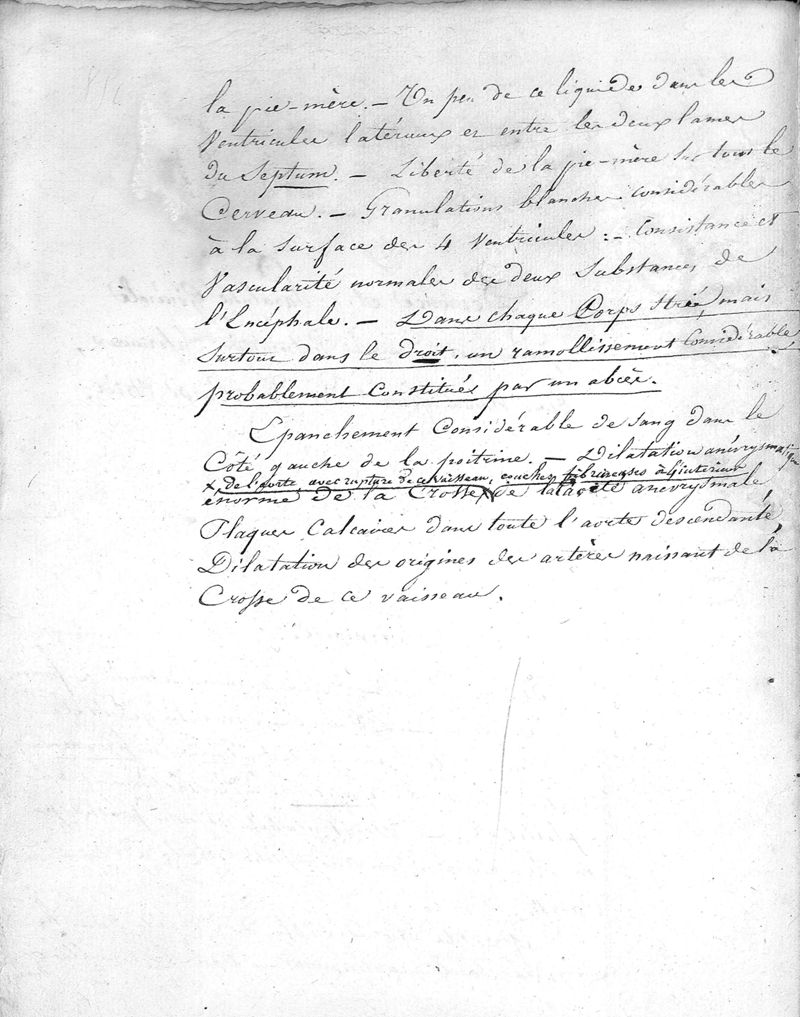 la pie-mère. — Un peu de ce liquide dans les
Ventricules latéraux et entre les deux lames
du Septum. — Liberté de la pie-mère sur tout le
Cerveau. — Granulations blanches considérables
à la surface des 4 Ventricules : — Consistance et
Vascularité normales des deux Substances de
l'Encéphale. — Dans chaque Corps strié, mais
Surtout dans le droit, un ramollissement Considérable,
probablement Constitués par un abcès.
Epanchement Considérable de sang dans le
Côté gauche de la poitrine. — Dilatation anévrysmatique
x de l'aorte, avec rupture de ce vaisseau, couches fibrineuses à l'intérieur
énorme de la Crosse x de la cavité anevrysmale
Plaques Calcaires dans toute l'aorte descendante,
Dilatation des origines des artères naissant de la
Crosse de ce vaisseau.